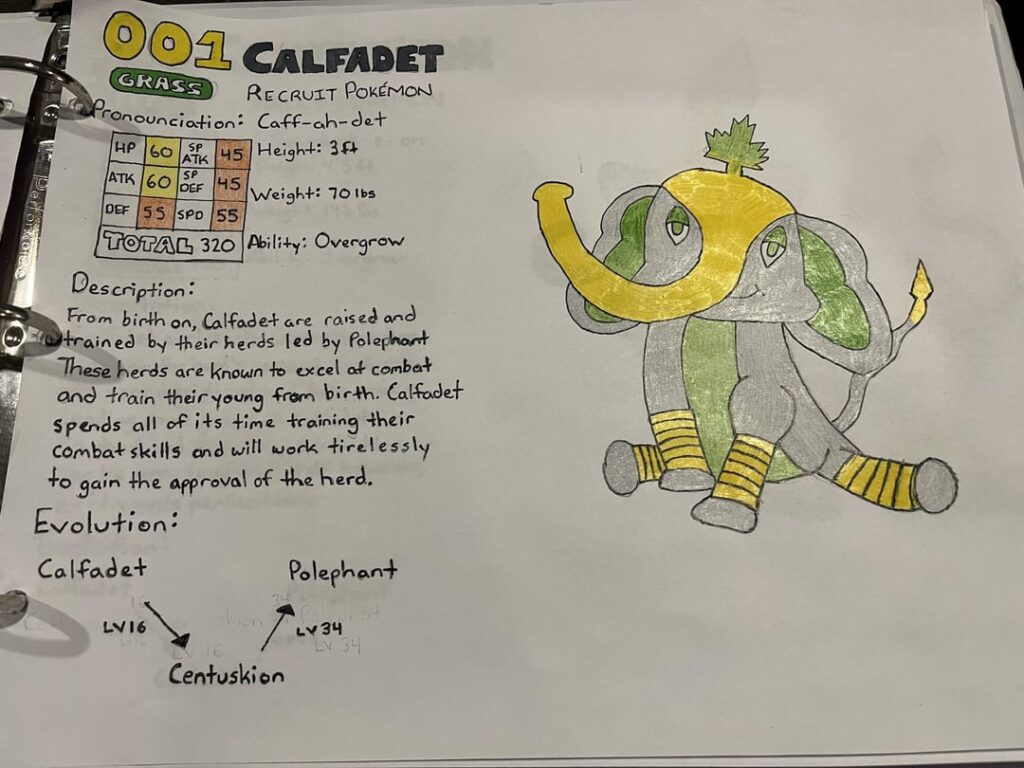 001 CALFADET
GRASS RECRUIT POKÉMON
Pronounciation: Caff-ah-det
HP 60 SP ATK 45 Height: 3ft
ATK 60 SP DEF 45 Weight: 70 lbs
DEF 55 SPD 55
TOTAL 320 Ability: Overgrow
Description:
From birth on, Calfadet are raised and
trained by their herds led by Polephant
These herds are known to excel at combat
and train their young from birth. Calfadet
spends all of its time training their
combat skills and will work tirelessly
to gain the approval of the herd.
Evolution:
Calfadet Polephant
LV16 LV 34
Centuskion